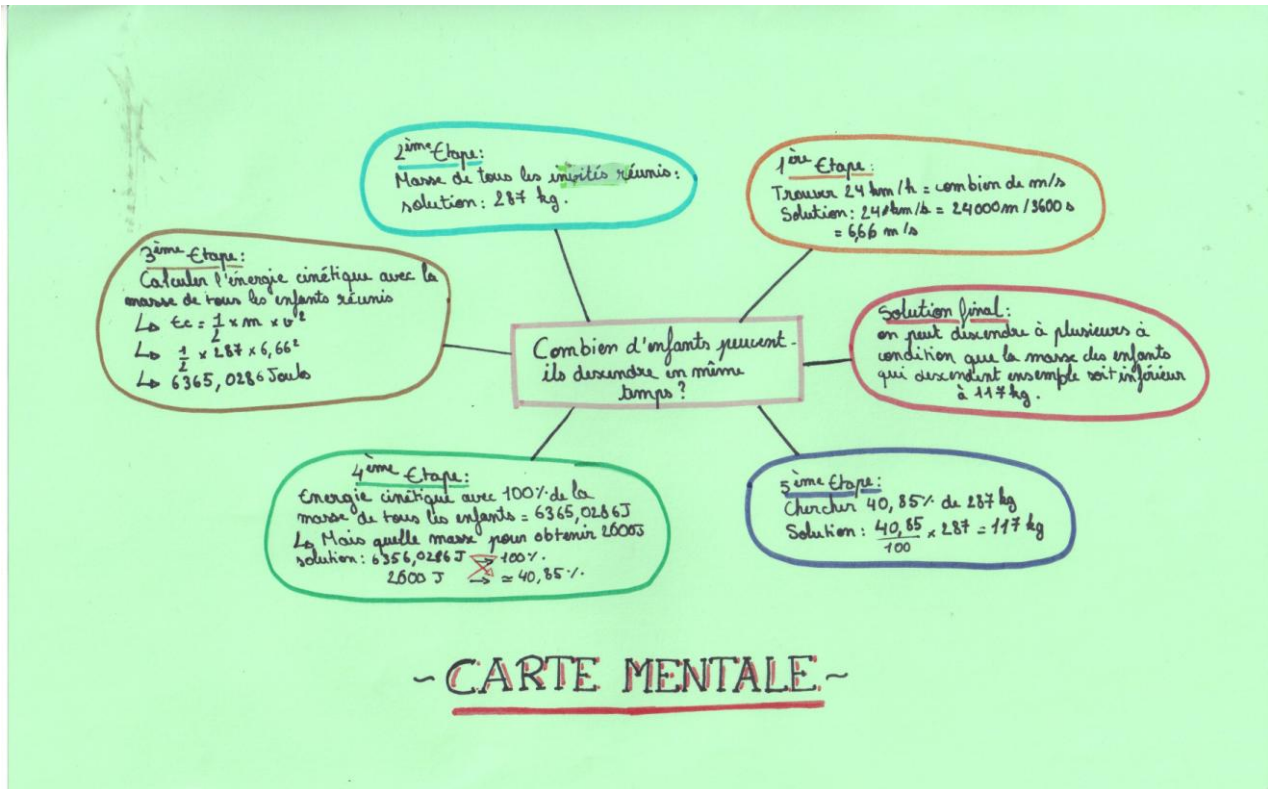 1ère Etape:
Trouver 24 km/h = combien de m/s
Solution: 24 km/h = 24000m/3600s
= 6,66 m/s
2ème Etape:
Masse de tous les invités réunis:
solution: 287 kg.
3ème Etape:
Calculer l'énergie cinétique avec la
masse de tous les enfants réunis
↳ Ec = 1/2 × m × v²
↳ 1/2 × 287 × 6,66²
↳ 6365,0286 Joules
4ème Etape:
Energie cinétique avec 100% de la
masse de tous les enfants = 6365,0286J
↳ Mais quelle masse pour obtenir 2600J
solution: 6356,0286J → 100%.
2600 J → ≃ 40,85%.
5ème Etape:
Chercher 40,85% de 287 kg
Solution: 40,85/100 × 287 = 117 kg
Solution final:
on peut descendre à plusieurs à
condition que la masse des enfants
qui descendent ensemple soit inférieur
à 117 kg.
Combien d'enfants peuvent-
ils descendre en même
temps?
~ CARTE MENTALE ~